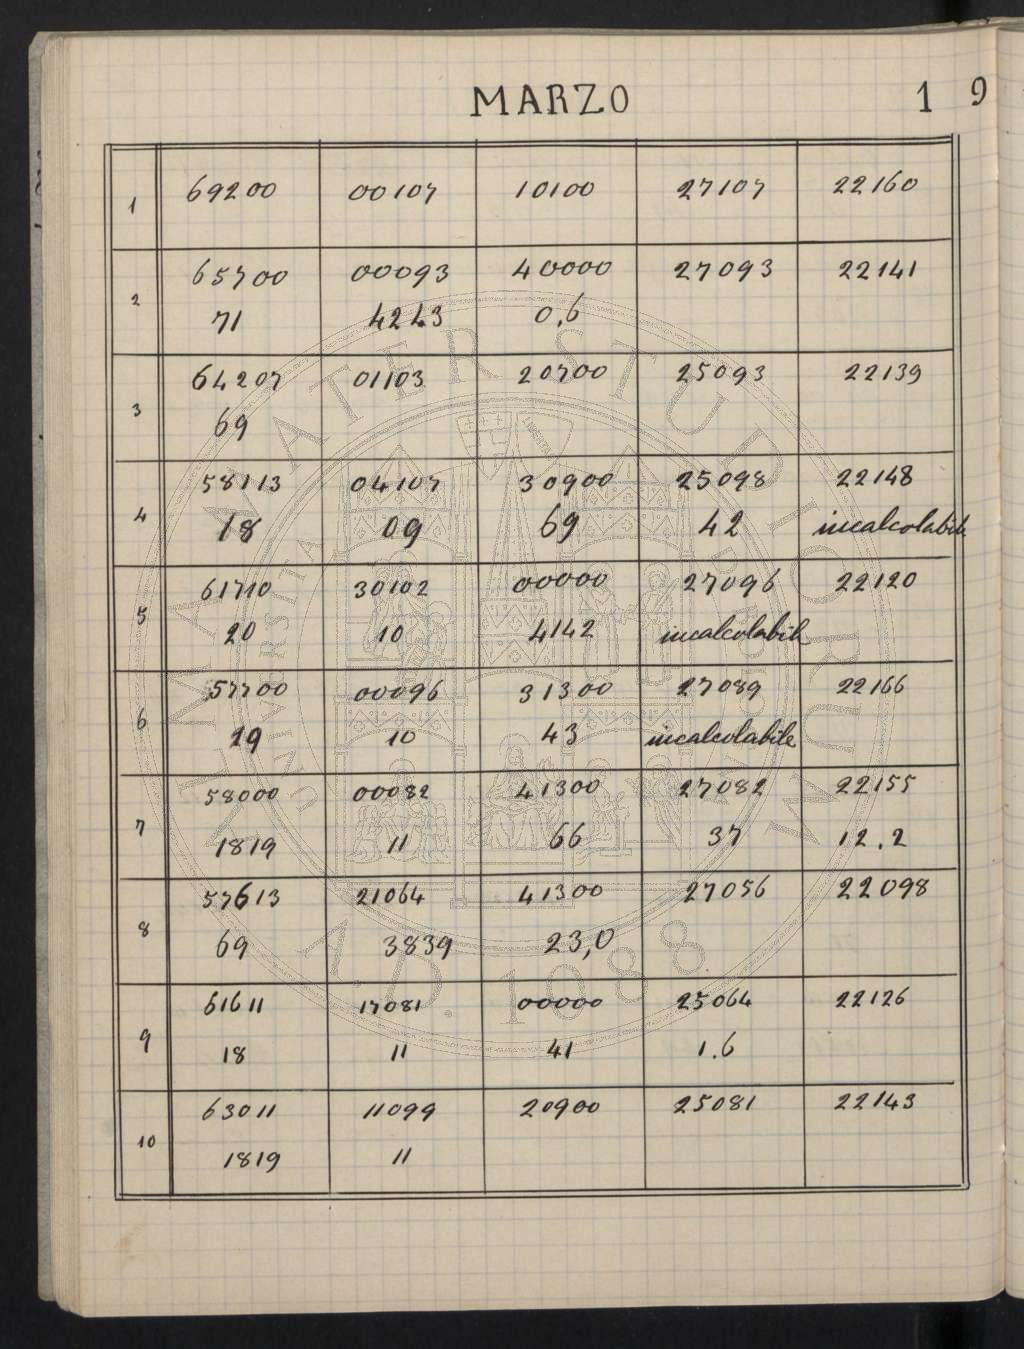 MARZO 1 9
1 69200 00107 10100 27107 22160
2 65700 00093 40000 27093 22141
71 4243 0.6
3 64207 01103 20700 25093 22139
69
4 58113 04107 30900 25098 22148
18 09 69 42 incalcolabile
5 61710 30102 00000 27096 22120
20 10 4142 incalcolabile
6 57700 00096 31300 27089 22166
19 10 43 incalcolabile
7 58000 00082 41300 27082 22155
1819 11 66 37 12.2
8 57613 21064 41300 27056 22098
69 3839 23,0
9 61611 17081 00000 25064 22126
18 11 41 1.6
10 63011 11099 20900 25081 22143
1819 11
ALMA MATER STUDIORUM
UNIVERSITÀ DI BOLOGNA
A.D. 1088